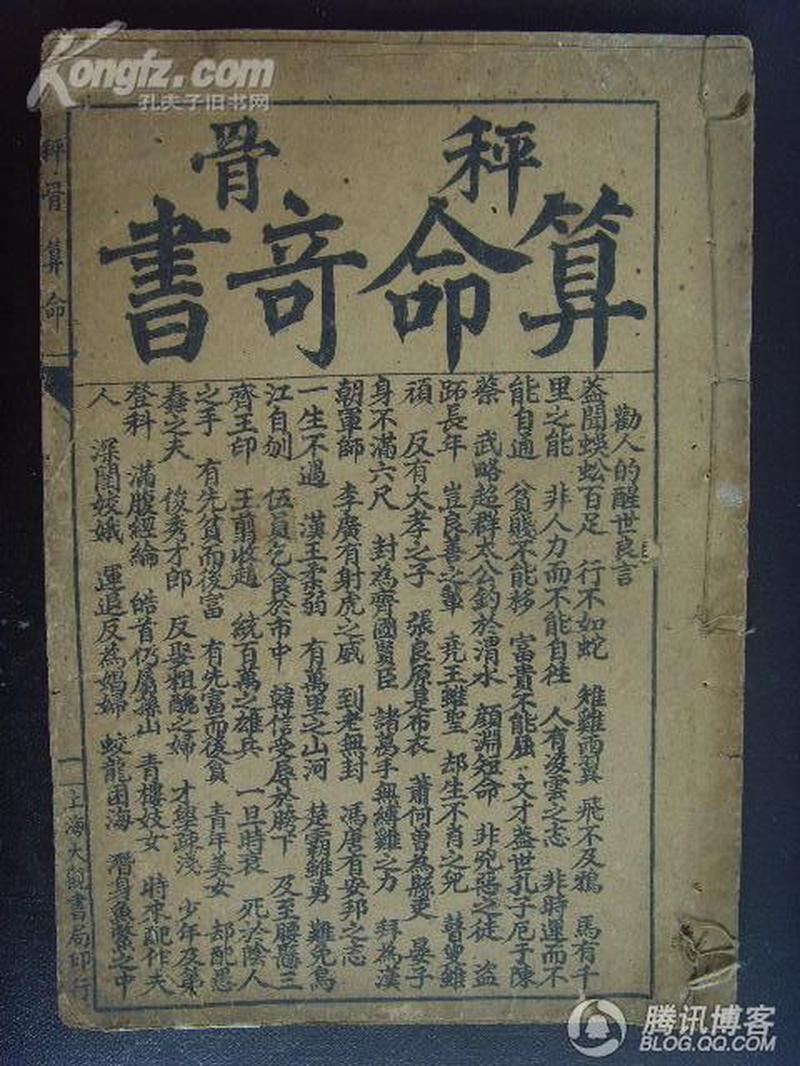 Kongfz.com
孔夫子旧书网
秤骨
算命竒書
勸人的醒世良言
盖聞蜈蚣百足 行不如蛇 雉雞兩翼 飛不及鴉 馬有千
里之能 非人力而不能自往 人有凌雲之志 非時運而不
能自通 貧賤不能移 富貴不能屈 文才盖世孔子厄于陳
蔡 武略超群太公釣於渭水 顔淵短命 非兇惡之徒 盗
跖長年 豈良善之輩 堯王雖聖 却生不肖之兒 瞽叟雖
頑 反有大孝之子 張良原是布衣 蕭何曽為縣吏 晏子
身不滿六尺 封為齊國賢臣 諸葛手無縛雞之力 拜為漢
朝軍師 李廣有射虎之威 到老無封 馮唐有安邦之志
一生不遇 漢王柔弱 有萬里之山河 楚霸雖勇 難免烏
江自刎 伍員乞食於市中 韓信受辱於胯下 及至腰懸三
齊王印 王翦收趙 統百萬之雄兵 一旦時衰 死於陰人
之手 有先貧而後富 有先富而後貧 青年美女 却配愚
蠢之夫 俊秀才郎 反娶粗醜之婦 才學疎淺 少年及第
登科 滿腹經綸 皓首仍屬孫山 青樓妓女 時來配作夫
人 深閨姣娥 運退反為娼婦 蛟龍困海 潛身魚鱉之中
秤骨算命
一
上海大觀書局印行
腾讯博客
BLOG.QQ.COM